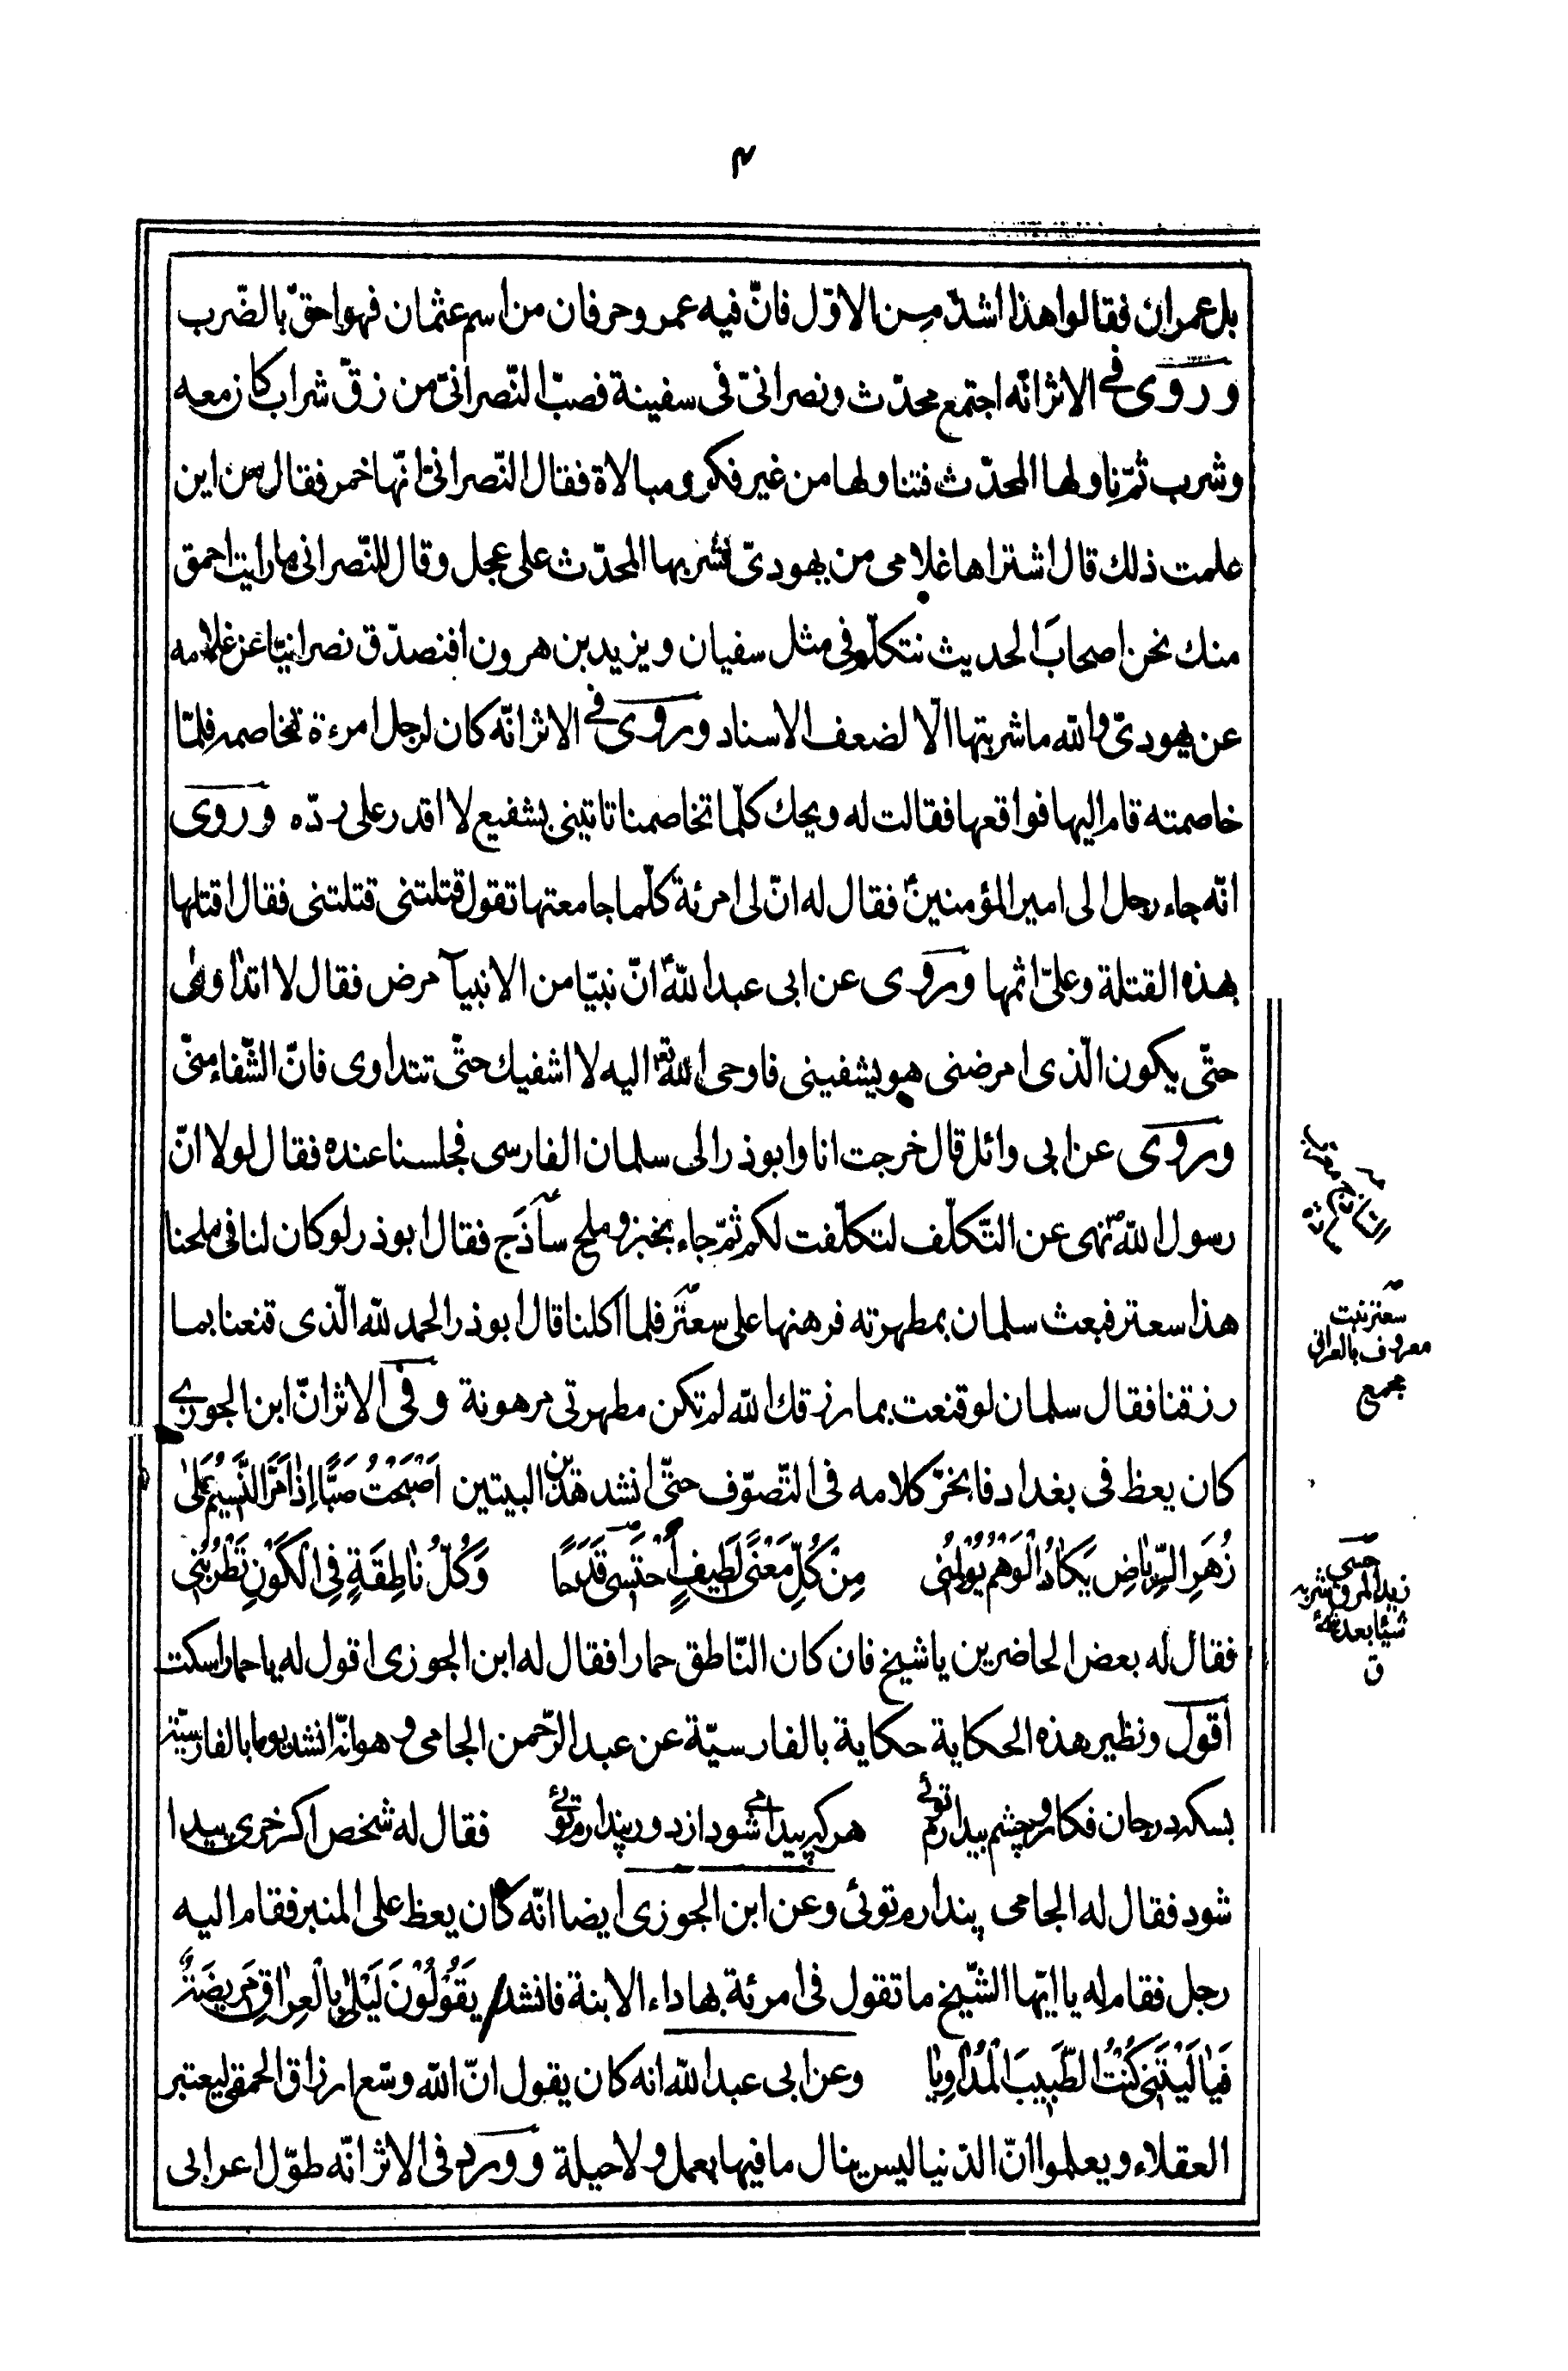 ۴
بل عمران فقالوا هذا اشدّ من الاوّل فانّ فيه عمر وحرفان من اسم عثمان فهو احقّ بالضّرب
وروى في الاثر انّه اجتمع محدّث ونصرانىّ فى سفينة فصبّ النّصرانىّ من زقّ شراب كان معه
وشرب ثمّ ناولها المحدّث فتناولها من غير فكر ومبالاة فقال النّصرانىّ انّها خمر فقال من اين
علمت ذلك قال اشتراها غلامى من يهودىّ فشربها المحدّث على عجل وقال للنّصرانى ما رايت احمق
منك نحن اصحابَ الحديث نتكلّم فى مثل سفيان ويزيد بن هرون افنصدّق نصرانيّا عن غلامه
عن يهودىّ والله ما شربتها الّا لضعف الاسناد وروى في الاثر انّه كان لرجل امرءة تخاصمه فلمّا
خاصمته قام اليها فواقعها فقالت له ويحك كلّما تخاصمنا تاتينى بشفيع لا اقدر على ردّه وروى
انّه جاء رجل الى امير المؤمنينؑ فقال له انّ لى امرئة كلّما جامعتها تقول قتلتنى قتلتنى فقال اقتلها
بهذه القتلة وعلىّ اثمها وروى عن ابى عبد اللهؑ انّ نبيّا من الانبيآ مرض فقال لا اتداوى
حتّى يكون الّذى امرضنى هو يشفينى فاوحى الله تع اليه لا اشفيك حتّى تتداوى فانّ الشّفاء منّى
وروى عن ابى وائل قال خرجت انا وابوذر الى سلمان الفارسى فجلسنا عنده فقال لولا انّ
رسول اللهؐ نهى عن التّكلّف لتكلّفت لكم ثمّ جاء بخبز وملح سآذَج فقال ابوذر لو كان لنا فى ملحنا
هذا سعتر فبعث سلمان بمطهرته فرهنها على سعتر فلما اكلنا قال ابوذر الحمد لله الّذى قنعنا بما
رزقنا فقال سلمان لو قنعت بما رزقك الله لم تكن مطهرتى مرهونة وفى الاثر انّ ابن الجوزي
كان يعظ فى بغداد فانجرّ كلامه فى التّصوّف حتّى انشد هذين البيتين اَصْبَحْتُ صَبًّا اِذٰا مَرَّ النَّسيمُ عَلىٰ
زُهَرِ الرِّيٰاضِ يَكٰادُ الْوَهْمُ يُوْلِمُنى مِنْ كُلِّ مَعْنًى لَطِيفٍ اَحْتَسى قَدَحًا وَكُلُّ نٰاطِقَةٍ فِى الْكَوْنِ تَطْرُبُنى
فقال له بعض الحاضرين يا شيخ فان كان النّاطق حمارا فقال له ابن الجوزى اقول له يا حمار اسكت
اقول ونظير هذه الحكاية حكاية بالفارسيّة عن عبد الرّحمن الجامى وهو انّه انشد يوما بالفارسيّة
بسكه در جان فكار و چشم بيدارم توئى هر كه پيدا مي شود از دور پندارم توئي فقال له شخص اكر خرى پيدا
شود فقال له الجامى پندارم توئى وعن ابن الجوزى ايضا انّه كان يعظ على المنبر فقام اليه
رجل فقام له يا ايّها الشّيخ ما تقول فى امرئة بها داء الابنة فانشد يَقُولُوْنَ لَيْلىٰ بِالْعِرٰاقِ مَريضَةٌ
فَيٰا لَيْتَنى كُنْتُ الطَّبيبَ الْمُدٰاوِيٰا وعن ابى عبد الله انه كان يقول انّ الله وسّع ارزاق الحمقى ليعتبر
العقلاء ويعلموا انّ الدّنيا ليس ينال ما فيها بعمل ولا حيلة وورد فى الاثر انّه طوّل اعرابى
سعتر نبت
معروف بالعراق
مجمع
حسى
زيد المرق شربه
شيئا بعد شئ
ق